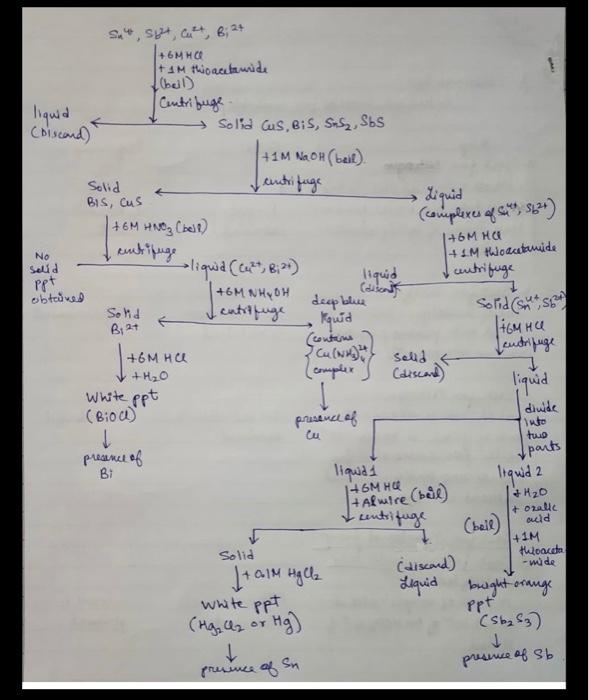 Sn⁴⁺, Sb²⁺, Cu²⁺, Bi²⁺
+6M HCl
+ 1M thioacetamide
(boil)
Centrifuge.
liquid
(Discard)
Solid CuS, BiS, SnS₂, SbS
+1M NaOH (boil).
centrifuge
Solid
BiS, CuS
Liquid
(complexes of Sn⁴⁺, Sb²⁺)
+6M HNO₃ (boil)
centrifuge
No
solid
ppt
obtained
liquid (Cu²⁺, Bi²⁺)
+6M HCl
+ 1M thioacetamide
centrifuge
liquid
(discard)
Solid (Sn⁴⁺, Sb²⁺)
+6M NH₄OH
centrifuge
Solid
Bi²⁺
deep blue
liquid
(contains
Cu(NH₃)₄²⁺
complex)
+6M HCl
centrifuge
solid
(discard)
liquid
+6M HCl
+ H₂O
White ppt
(BiOCl)
presence of
Bi
presence of
Cu
divide
into
two
parts
liquid 1
liquid 2
+6M HCl
+ Al wire (boil)
centrifuge
(boil)
+ H₂O
+ oxalic
acid
+1M
thioaceta
-mide
Solid
(discard)
Liquid
+ 0.1M HgCl₂
White ppt
(Hg₂Cl₂ or Hg)
presence of Sn
bright orange
ppt
(Sb₂S₃)
presence of Sb